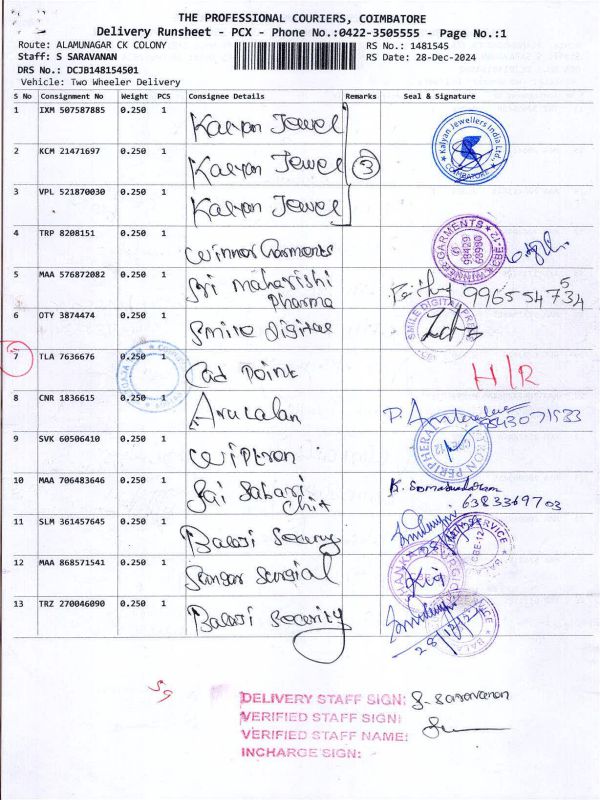 THE PROFESSIONAL COURIERS, COIMBATORE
Delivery Runsheet - PCX - Phone No.:0422-3505555 - Page No.:1
Route: ALAMUNAGAR CK COLONY RS No.: 1481545
Staff: S SARAVANAN RS Date: 28-Dec-2024
DRS No.: DCJB148154501
Vehicle: Two Wheeler Delivery
S No Consignment No Weight PCS Consignee Details Remarks Seal & Signature
1 IXM 507587885 0.250 1 Kalyan Jewel Kalyan Jewellers India Ltd. COIMBATORE
2 KCM 21471697 0.250 1 Kalyan Jewel 3
3 VPL 521870030 0.250 1 Kalyan Jewel
4 TRP 8208151 0.250 1 Winner Garments WINNER GARMENTS CBE-12 98429 68998
5 MAA 576872082 0.250 1 Sri Maharishi Pharma
6 OTY 3874474 0.250 1 Smile digital SMILE DIGITAL
7 TLA 7636676 0.250 1 Cad Point H/R
8 CNR 1836615 0.250 1 Arucalan 9843071533
9 SVK 60506410 0.250 1 Wiptron PERIPHERAL CBE-12
10 MAA 706483646 0.250 1 Sai Sabari Chit K. Somasundaram 6383369703
11 SLM 361457645 0.250 1 Balaji Security 28/12/24 SERVICE CBE-12
12 MAA 868571541 0.250 1 Sangar Surgical
13 TRZ 270046090 0.250 1 Balaji Security 28/12/24
59
DELIVERY STAFF SIGN: S. Saravanan
VERIFIED STAFF SIGN:
VERIFIED STAFF NAME:
INCHARGE SIGN: